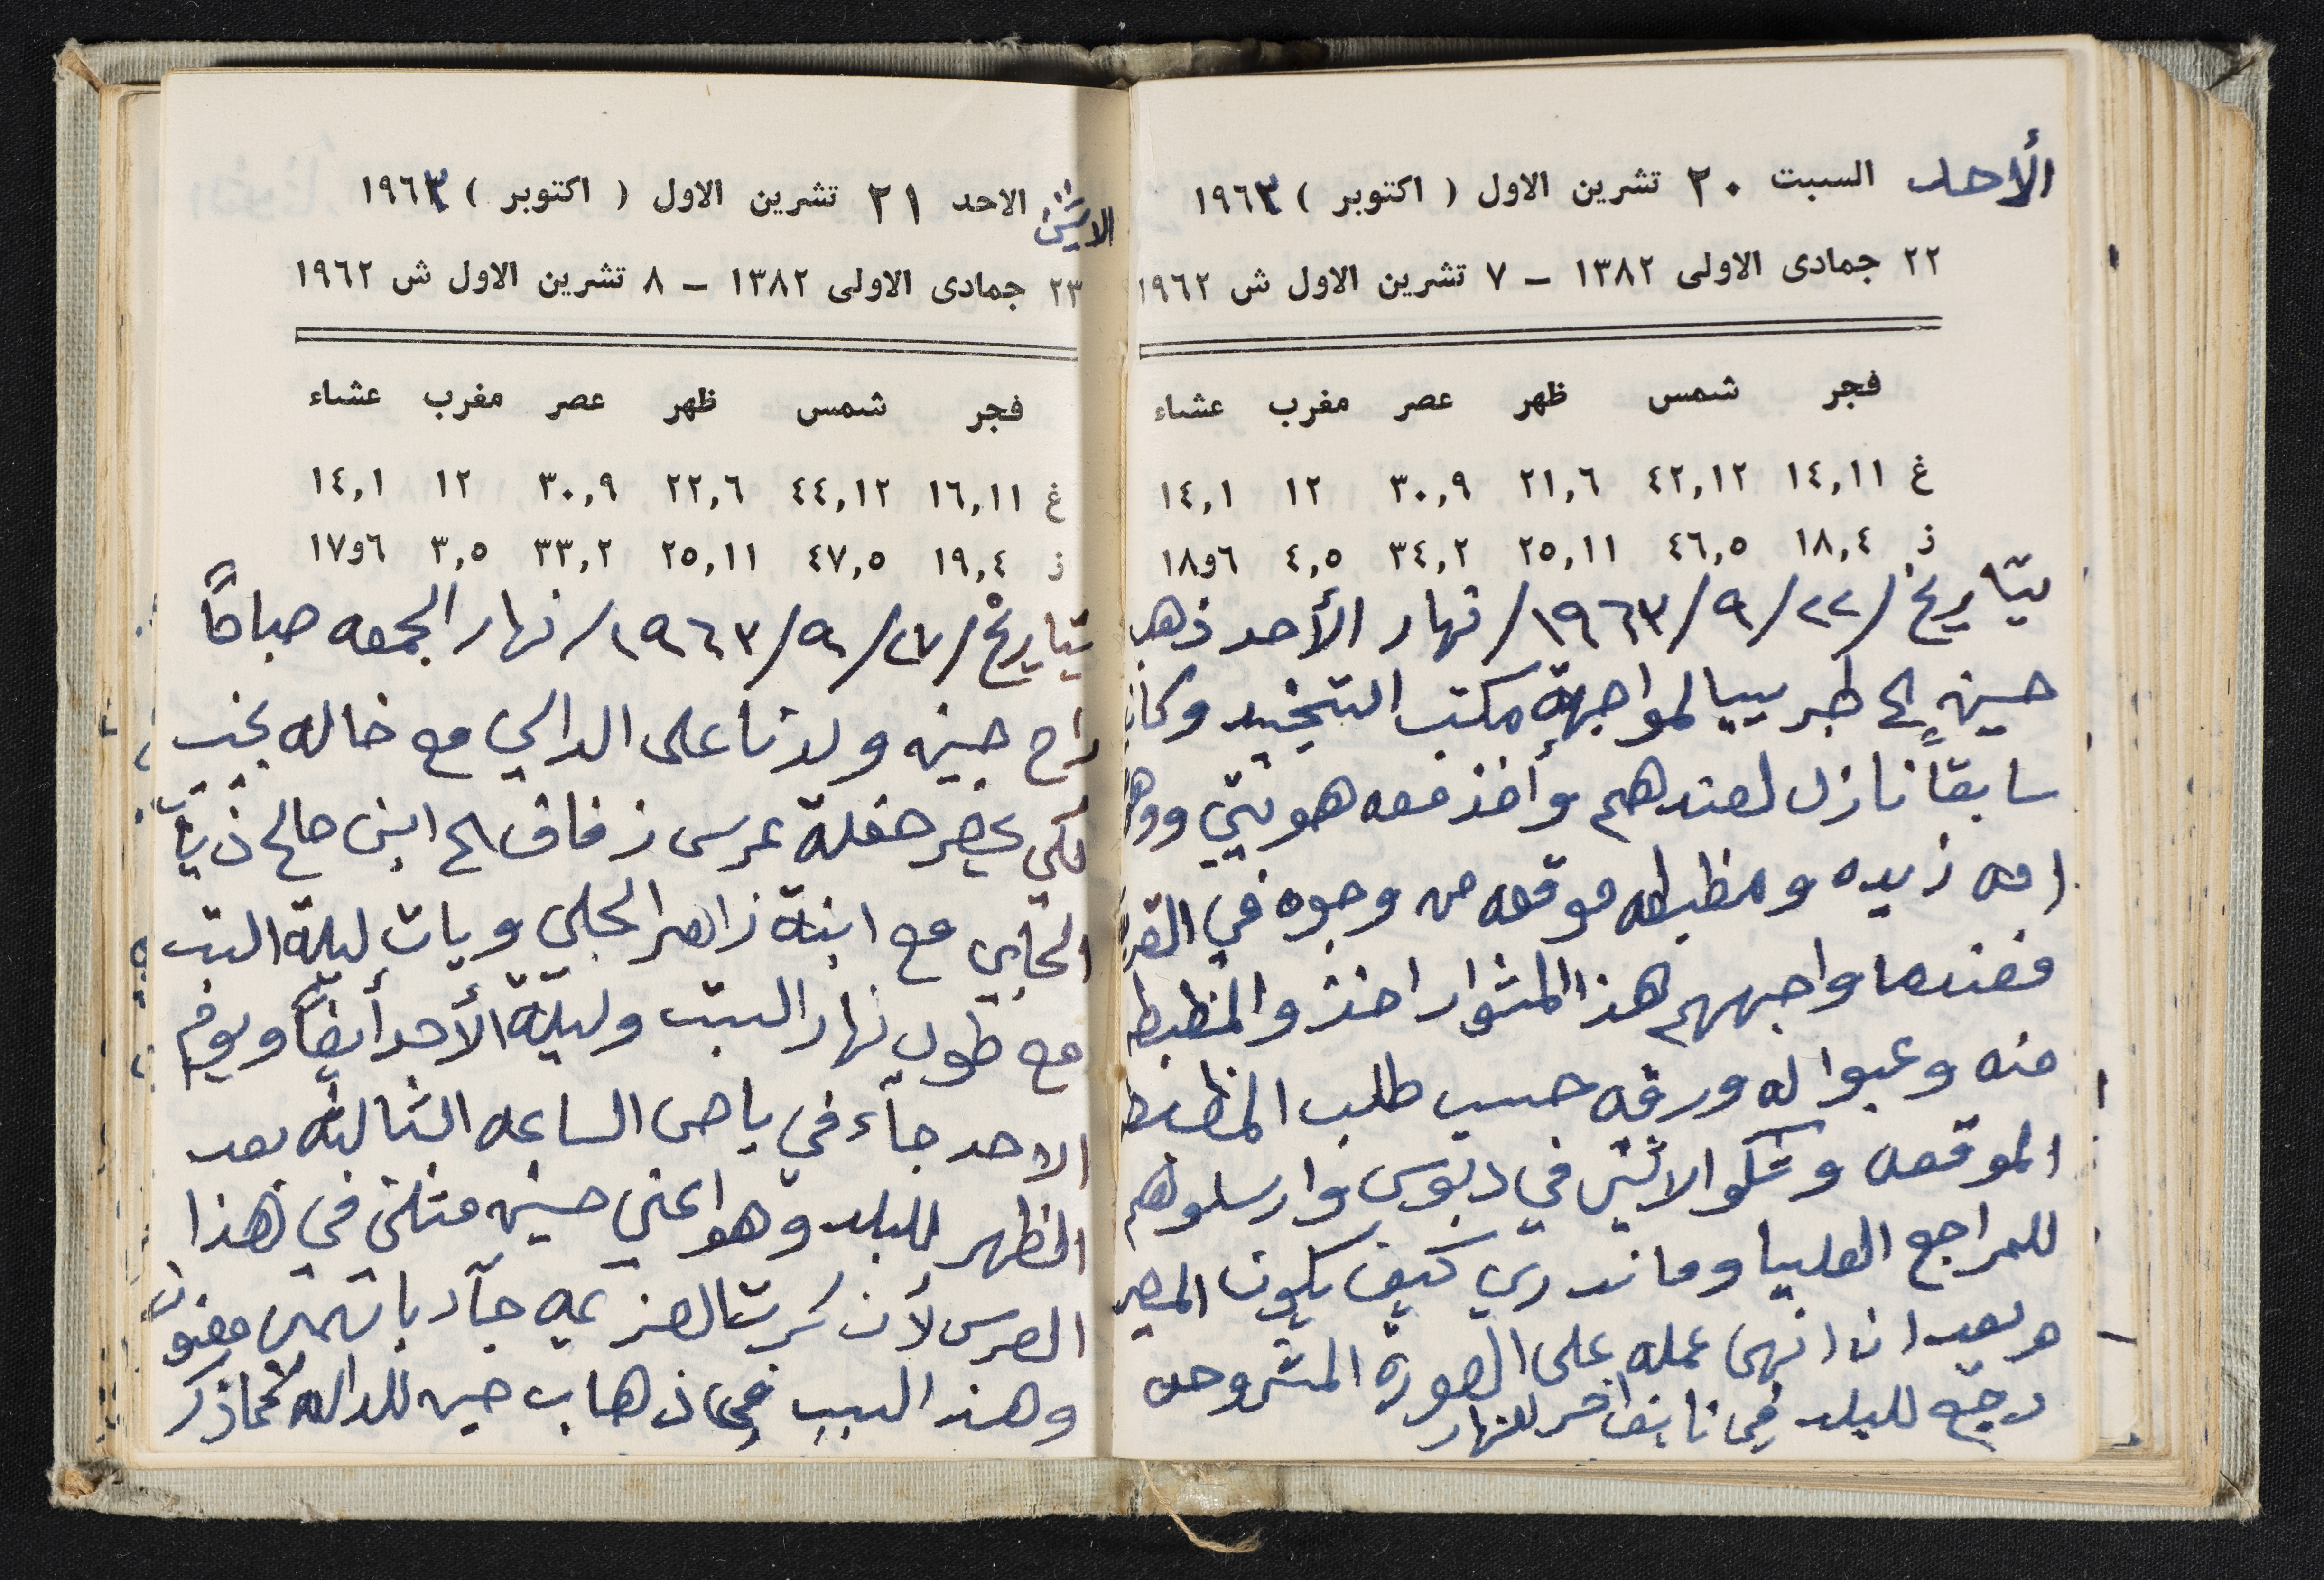 الأحد السبت ٢٠ تشرين الاول ( اكتوبر ) ١٩٦٣
٢٢ جمادى الاولى ١٣٨٢ – ٧ تشرين الاول ش ١٩٦٢
فجر شمس ظهر عصر مغرب عشاء
غ ١٤,١١ ٤٢,١٢ ٢١,٦ ٣٠,٩ ١٢ ١٤,١
ز ١٨,٤ ٤٦,٥ ٢٥,١١ ٣٤,٢ ٤,٥ ٦و١٨
بتاريخ /٢٢/٩/١٩٦٣/ نهار الأحد ذهب
حسين الى طبريا لمواجهة مكتب التجنيد وكان
سابقاً نازل لعندهم وأخذ معه هويتي
امه زيده ومظبطه موقعه من وجوه في
فعندما واجههم هذا المشوار اخذو المظبطه
منه وعبوا له ورقه حسب طلب المظبطه
الموقعه وشكوا الاثنين في دبوس وارسلوهم
للمراجع العليا وما ندري كيف يكون المصير
وبعد ان انهى عمله على الصورة المشروحه
رجع للبلد في اخر النهار
الاثنين الاحد ٢١ تشرين الاول ( اكتوبر ) ١٩٦٣
٢٣ جمادى الاولى ١٣٨٢ – ٨ تشرين الاول ش ١٩٦٢
فجر شمس ظهر عصر مغرب عشاء
غ ١٦,١١ ٤٤,١٢ ٢٢,٦ ٣٠,٩ ١٢ ١٤,١
ز ١٩,٤ ٤٧,٥ ٢٥,١١ ٣٣,٢ ٣,٥ ٦و١٧
بتاريخ /٢٧/٩/١٩٦٣/ نهار الجمعه صباحاً
راح حسين ولدنا على الدالي مع خاله نجيب
لكي يحضر حفلة عرس زفاف الى ابن صالح ذياب
الحلبي مع ابنة زاهر الحلبي وبات ليلة السبت
مع طول نهار السبت وليلة الأحد أيضاً ويوم
الاحد جاء في باص الساعه الثالثه بعد
الظهر للبلد وهو اعني حسين مثلني في هذا
العرس لأن كرت العزيمه جآد باسمي
وهذ السبب في ذهاب حسين للداليه كما ذكر